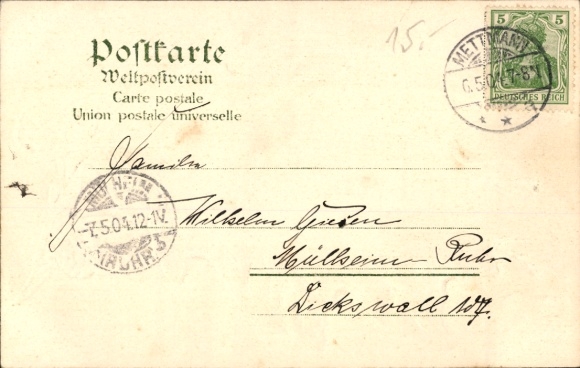 15.-
5 5
DEUTSCHES REICH
METTMANN
6.5.04. 7-8V
Postkarte
Weltpostverein
Carte postale
Union postale universelle
Familie
7.5.04.12-1V.
Wilhelm Giesen
Mülheim Ruhr
Dickswall 107.